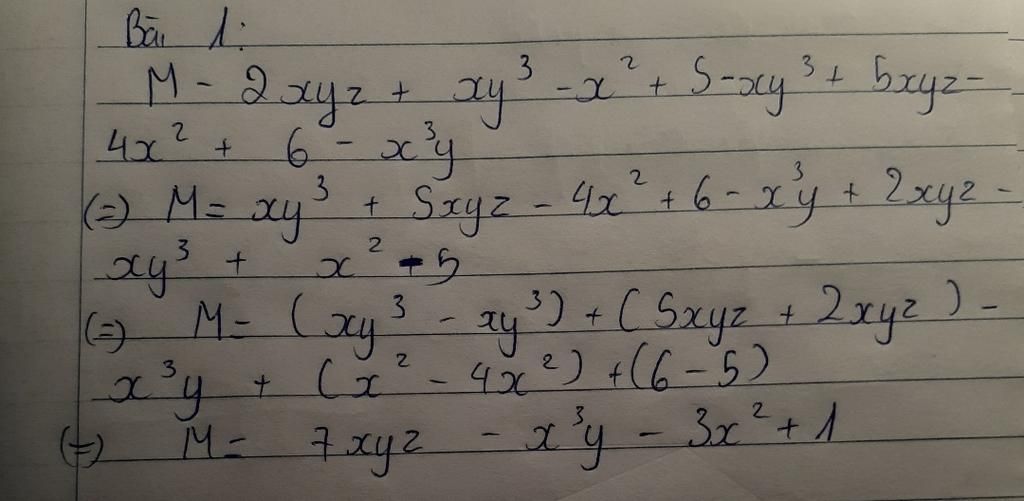 Bài 1:
M - 2xyz + xy³ - x² + 5 - xy³ + 5xyz -
4x² + 6 - x³y
(=) M = xy³ + 5xyz - 4x² + 6 - x³y + 2xyz -
xy³ + x² - 5
(=) M = (xy³ - xy³) + (5xyz + 2xyz) -
x³y + (x² - 4x²) + (6 - 5)
(=) M = 7xyz - x³y - 3x² + 1